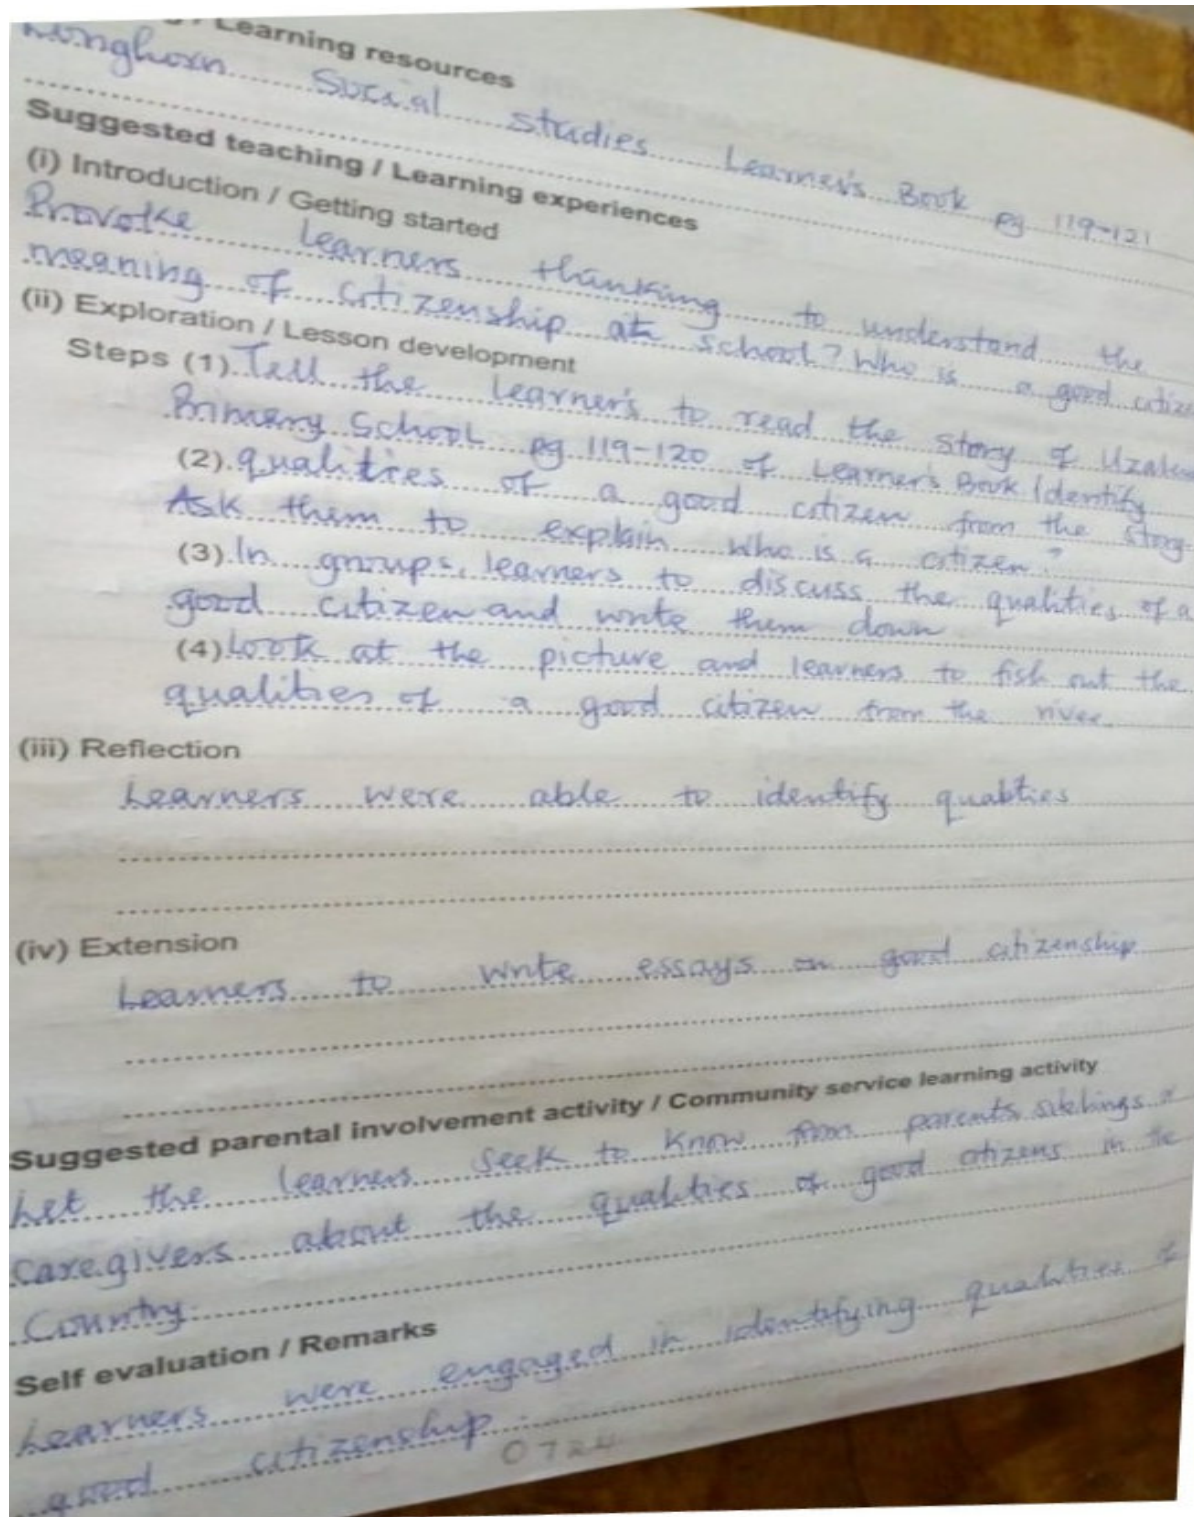 / Learning resources
Longhorn Social studies Learner's Book pg 119-121
Suggested teaching / Learning experiences
(i) Introduction / Getting started
Provoke learners thinking to understand the
meaning of citizenship at school? Who is a good citize
(ii) Exploration / Lesson development
Steps (1) Tell the learner's to read the story of Uzalen
Primary School pg 119-120 of Learner's Book Identify
(2) qualities of a good citizen from the story.
Ask them to explain who is a citizen?
(3) In groups, learners to discuss the qualities of a
good citizen and write them down
(4) Look at the picture and learners to fish out the
qualities of a good citizen from the river
(iii) Reflection
Learners were able to identify qualities
(iv) Extension
Learners to write essays on good citizenship
Suggested parental involvement activity / Community service learning activity
Let the learners seek to know from parents siblings
Caregivers about the qualities of good citizens in the
Country.
Self evaluation / Remarks
Learners were engaged in identifying qualities of
good citizenship.
0724